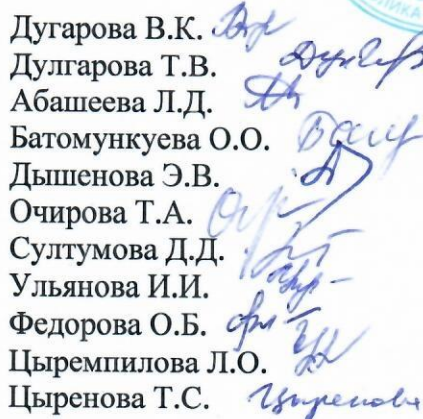 Дугарова В.К.
Дулгарова Т.В.
Абашеева Л.Д.
Батомункуева О.О.
Дышенова Э.В.
Очирова Т.А.
Султумова Д.Д.
Ульянова И.И.
Федорова О.Б.
Цыремпилова Л.О.
Цыренова Т.С. Цыренова